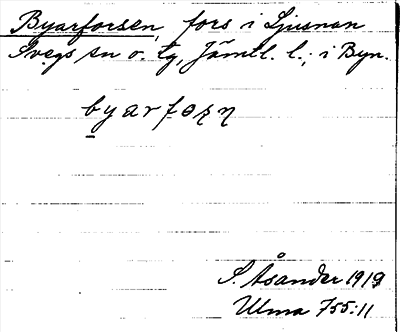 Byarforsen, fors i Ljusnan
Svegs sn o. tg, Jämtl. l.; i Byn.
byarfoʂn̥
S. Åsander 1919
Ulma 755:11